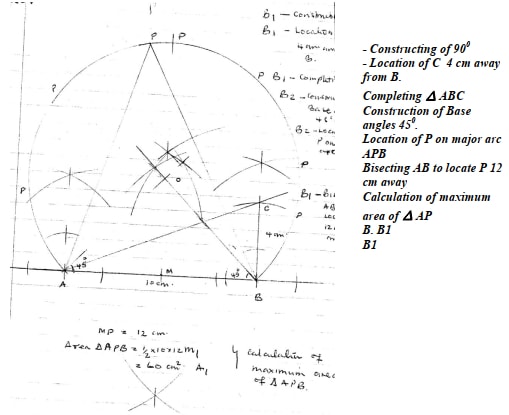 P P
B1 - Construct
B1 - Location
4cm
B.
P B1 - Completi
B2 -
Base
45°
B2 - Loca
P on
P
P
P
O
P
B1 - Bi
AB
C
P
12
4cm
45°
45°
A
M
B
10cm
MP = 12 cm
Area ΔAPB = ½ x10x12 M1
= 60 cm² A1
calculation of
maximum area
of ΔAPB.
- Constructing of 90⁰
- Location of C 4 cm away
from B.
Completing Δ ABC
Construction of Base
angles 45⁰.
Location of P on major arc
APB
Bisecting AB to locate P 12
cm away
Calculation of maximum
area of Δ AP
B. B1
B1